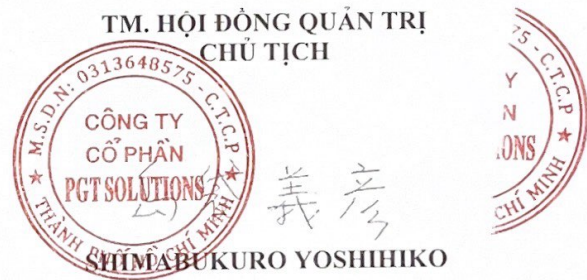 TM. HỘI ĐỒNG QUẢN TRỊ
CHỦ TỊCH
M.S.D.N: 0313648575 - C.T.C.P
CÔNG TY
CỔ PHẦN
PGT SOLUTIONS
THÀNH PHỐ HỒ CHÍ MINH
義彦
SHIMABUKURO YOSHIHIKO
75 - C.T.C.P
Y
N
IONS
CHÍ MINH